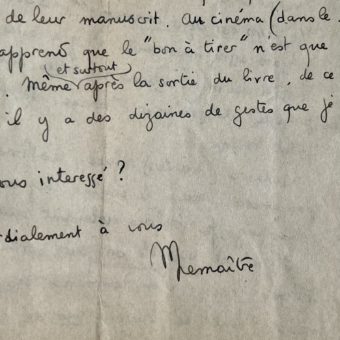 de leur manuscrit. Au cinéma (dans le
apprend que le "bon à tirer" n'est que
(et surtout)
. Même après la sortie du livre, de ce
il y a des dizaines de gestes que je
ous interessé ?
dialement à vous
Lemaître